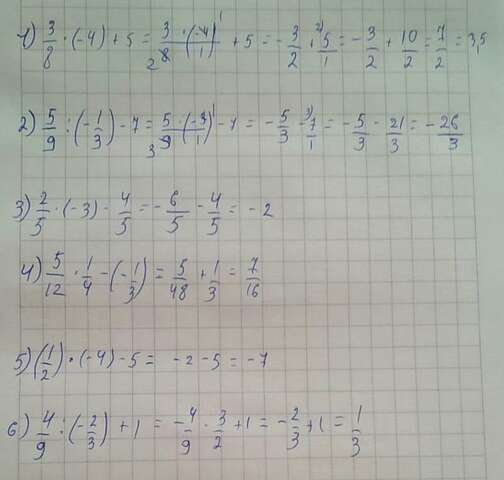 1) 3/8 · (-4) + 5 = 3 · (-4) / 2 8 · 1 + 5 = -3/2 + 5/1 = -3/2 + 10/2 = 7/2 = 3,5
2) 5/9 : (-1/3) - 7 = 5 · (-3) / 3 9 · 1 - 7 = -5/3 - 7/1 = -5/3 - 21/3 = -26/3
3) 2/5 · (-3) - 4/5 = -6/5 - 4/5 = -2
4) 5/12 · 1/4 - (-1/3) = 5/48 + 1/3 = 7/16
5) (1/2) · (-4) - 5 = -2 - 5 = -7
6) 4/9 : (-2/3) + 1 = -4/9 · 3/2 + 1 = -2/3 + 1 = 1/3